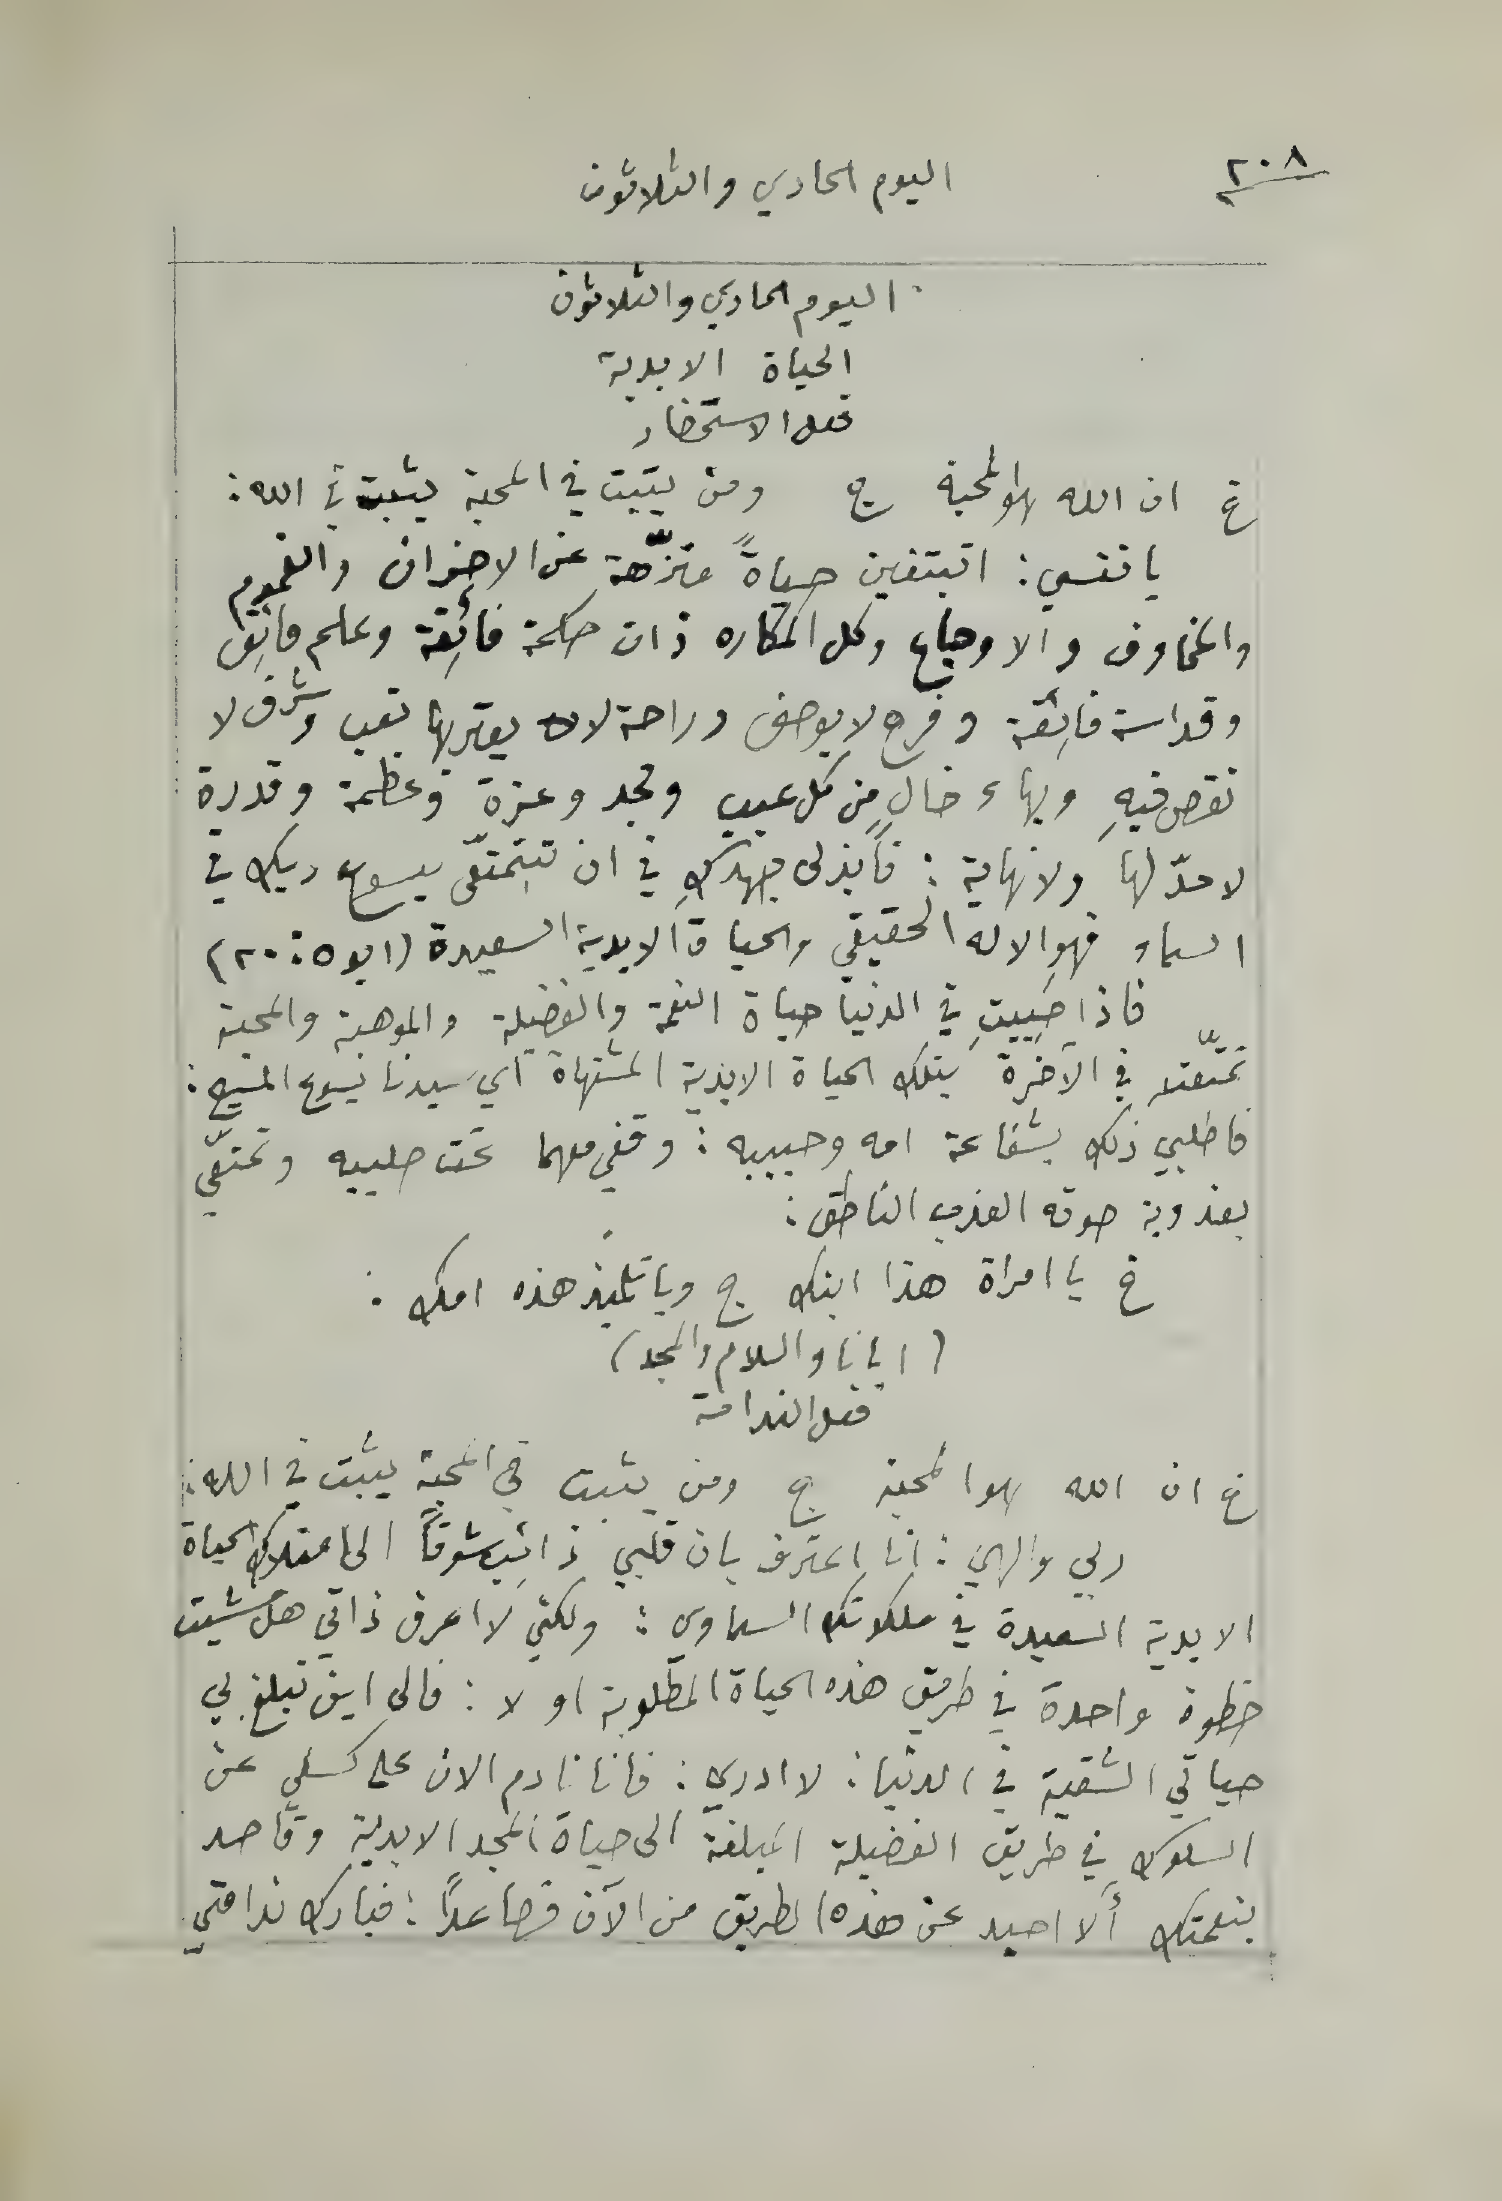 ٢٠٨
اليوم الحادي والثلاثون
اليوم الحادي والثلاثون
الحياة الابدية
فعل الاستحضار
خ ان الله هو المحبة ج ومن يثبت في المحبة يثبت في الله :
يا نفسي : اتبتغين حياةً منزّهة عن الاحزان والغموم
والمخاوف والاوجاع وكل المكاره ذات حكمة فائِقة وعلم فائِق
وقداسة فائِقة وفرح لا يوصف وراحة لا يعتريها تعب وشرف لا
نقص فيهِ وبهاء خالٍ من كل عيب ومجد وعزة وعظمة وقدرة
لا حدّ لها ولا نهاية : فابذلي جهدكِ في ان تتمتعّي بيسوع ربك في
السماء فهو الاله الحقيقي والحياة الابدية السعيدة (١يو٥:٢٠)
فاذا حييتِ في الدنيا حياة النعمة والفضيلة والموهبة والمحبة
تمتّعتِ في الآخرة بتلك الحياة الابدية المشتهاة اي سيدنا يسوع المسيح :
فاطلبي ذلك بشفاعة امه وحبيبه : وقفي معهما تحت صليبه وتمتعّي
بعذوبة صوته العذب الناطق :
خ يا امراة هذا ابنك ج ويا تلميذ هذه امك :
(ابانا والسلام والمجد)
فعل الندامة
خ ان الله هو المحبة ج ومن يثبت في المحبة يثبت في الله :
ربي والهي : انا اعترف بان قلبي ذائب شوقاً الى امتلاك الحياة
الابدية السعيدة في ملكوتك السماوي : ولكني لا اعرف ذاتي هل مشيت
خطوة واحدة في طريق هذه الحياة المطلوبة او لا : فالى اين تبلغ بي
حياتي الشقية في الدنيا : لا ادري : فانا نادم الان على كسلي عن
السلوك في طريق الفضيلة المبلغة الى حياة المجد الابدية وقاصد
بنعمتك ألا احيد عن هذه الطريق من الآن فصاعداً : فبارك ندامتي